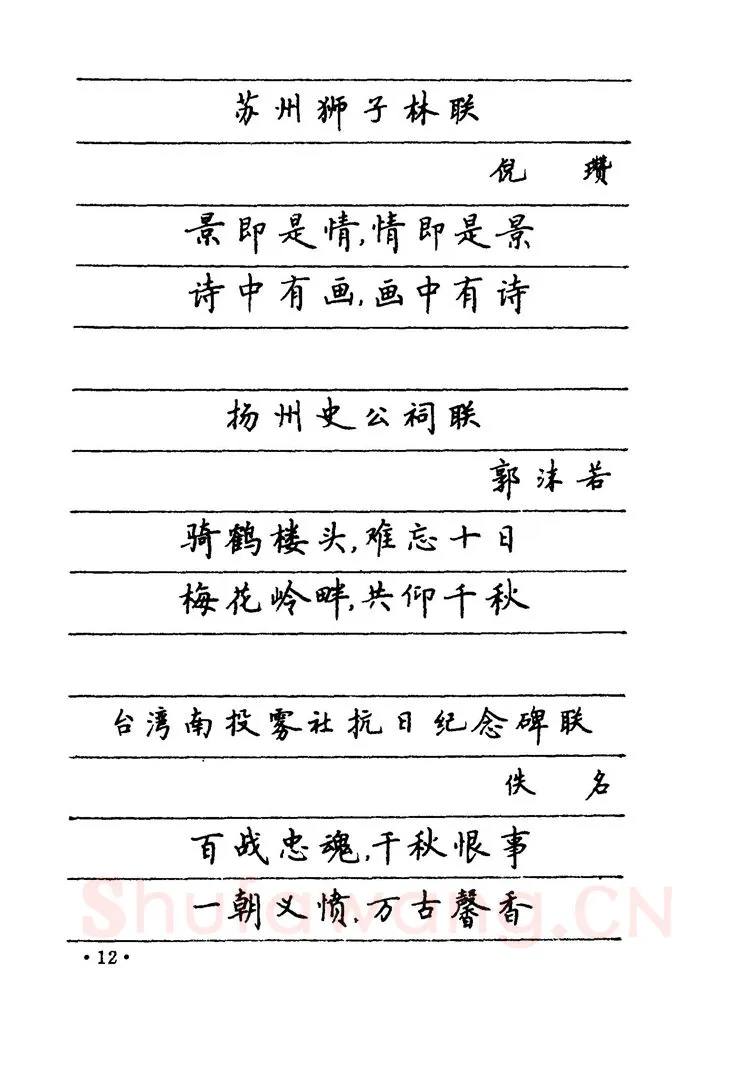 苏州狮子林联
倪 瓒
景即是情,情即是景
诗中有画,画中有诗
扬州史公祠联
郭沫若
骑鹤楼头,难忘十日
梅花岭畔,共仰千秋
台湾南投雾社抗日纪念碑联
佚 名
百战忠魂,千秋恨事
一朝义愤,万古馨香
Shufawang.CN
·12·